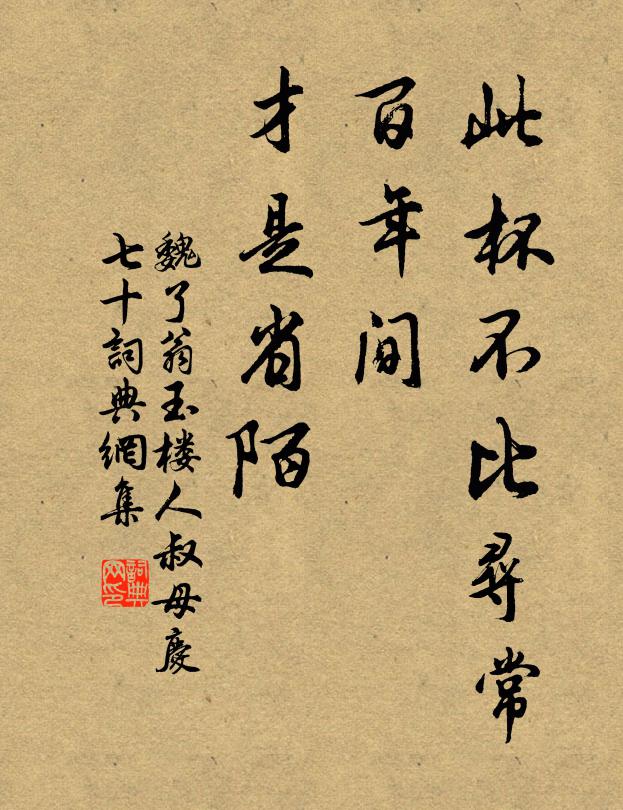 此杯不比尋常
百年間
才是省陌
魏了翁玉楼人叔母慶
七十詞典網集
詞典
网印